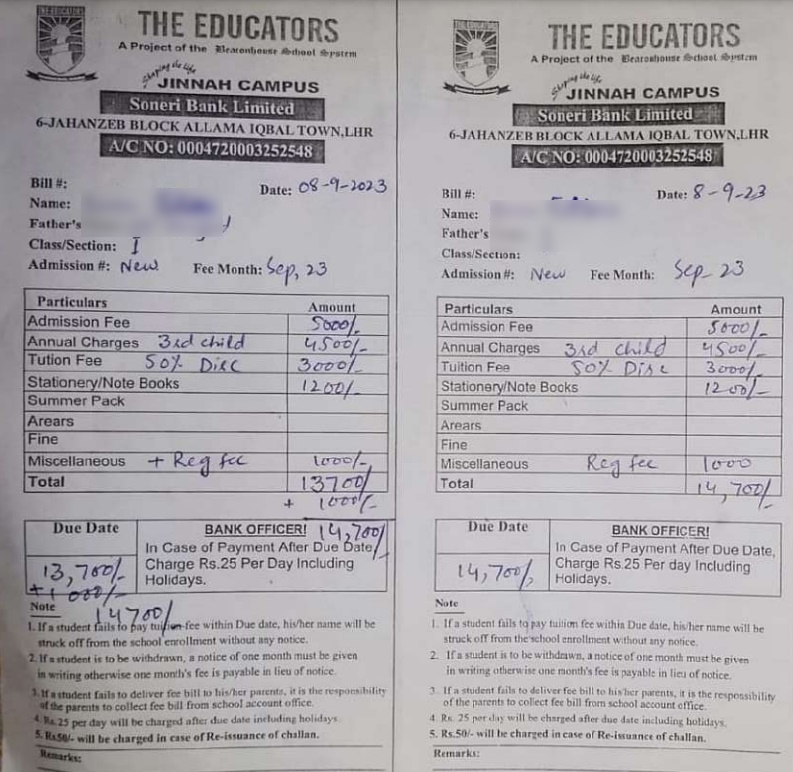 THE EDUCATORS
THE EDUCATORS
A Project of the Beaconhouse School System
Shaping the life
JINNAH CAMPUS
Soneri Bank Limited
6-JAHANZEB BLOCK ALLAMA IQBAL TOWN,LHR
A/C NO: 0004720003252548
Bill #:
Date: 08-9-2023
Name:
Father's
Class/Section: I
Admission #: New Fee Month: Sep, 23
Particulars Amount
Admission Fee 5000/-
Annual Charges 3rd child 4500/-
Tution Fee 50% Disc 3000/-
Stationery/Note Books 1200/-
Summer Pack
Arears
Fine
Miscellaneous + Reg fee 1000/-
Total 13700/
+ 1000/-
14,700/
Due Date BANK OFFICER!
13,700/- In Case of Payment After Due Date,
+1000/- Charge Rs.25 Per Day Including
Holidays.
14700/
Note
1. If a student fails to pay tuition fee within Due date, his/her name will be
struck off from the school enrollment without any notice.
2. If a student is to be withdrawn, a notice of one month must be given
in writing otherwise one month's fee is payable in lieu of notice.
3. If a student fails to deliver fee bill to his/her parents, it is the responsibility
of the parents to collect fee bill from school account office.
4. Rs. 25 per day will be charged after due date including holidays.
5. Rs50/- will be charged in case of Re-issuance of challan.
Remarks:
THE EDUCATORS
THE EDUCATORS
A Project of the Beaconhouse School System
Shaping the life
JINNAH CAMPUS
Soneri Bank Limited
6-JAHANZEB BLOCK ALLAMA IQBAL TOWN,LHR
A/C NO: 0004720003252548
Bill #:
Date: 8-9-23
Name:
Father's
Class/Section:
Admission #: New Fee Month: Sep-23
Particulars Amount
Admission Fee 5000/-
Annual Charges 3rd child 4500/-
Tuition Fee 50% Disc 3000/-
Stationery/Note Books 1200/-
Summer Pack
Arears
Fine
Miscellaneous Reg fee 1000
Total 14,700/
Due Date BANK OFFICER!
14,700/, In Case of Payment After Due Date,
Charge Rs.25 Per day Including
Holidays.
Note
1. If a student fails to pay tuition fee within Due date, his/her name will be
struck off from the school enrollment without any notice.
2. If a student is to be withdrawn, a notice of one month must be given
in writing otherwise one month's fee is payable in lieu of notice.
3. If a student fails to deliver fee bill to his/her parents, it is the responsibility
of the parents to collect fee bill from school account office.
4. Rs. 25 per day will be charged after due date including holidays.
5. Rs.50/- will be charged in case of Re-issuance of challan.
Remarks: